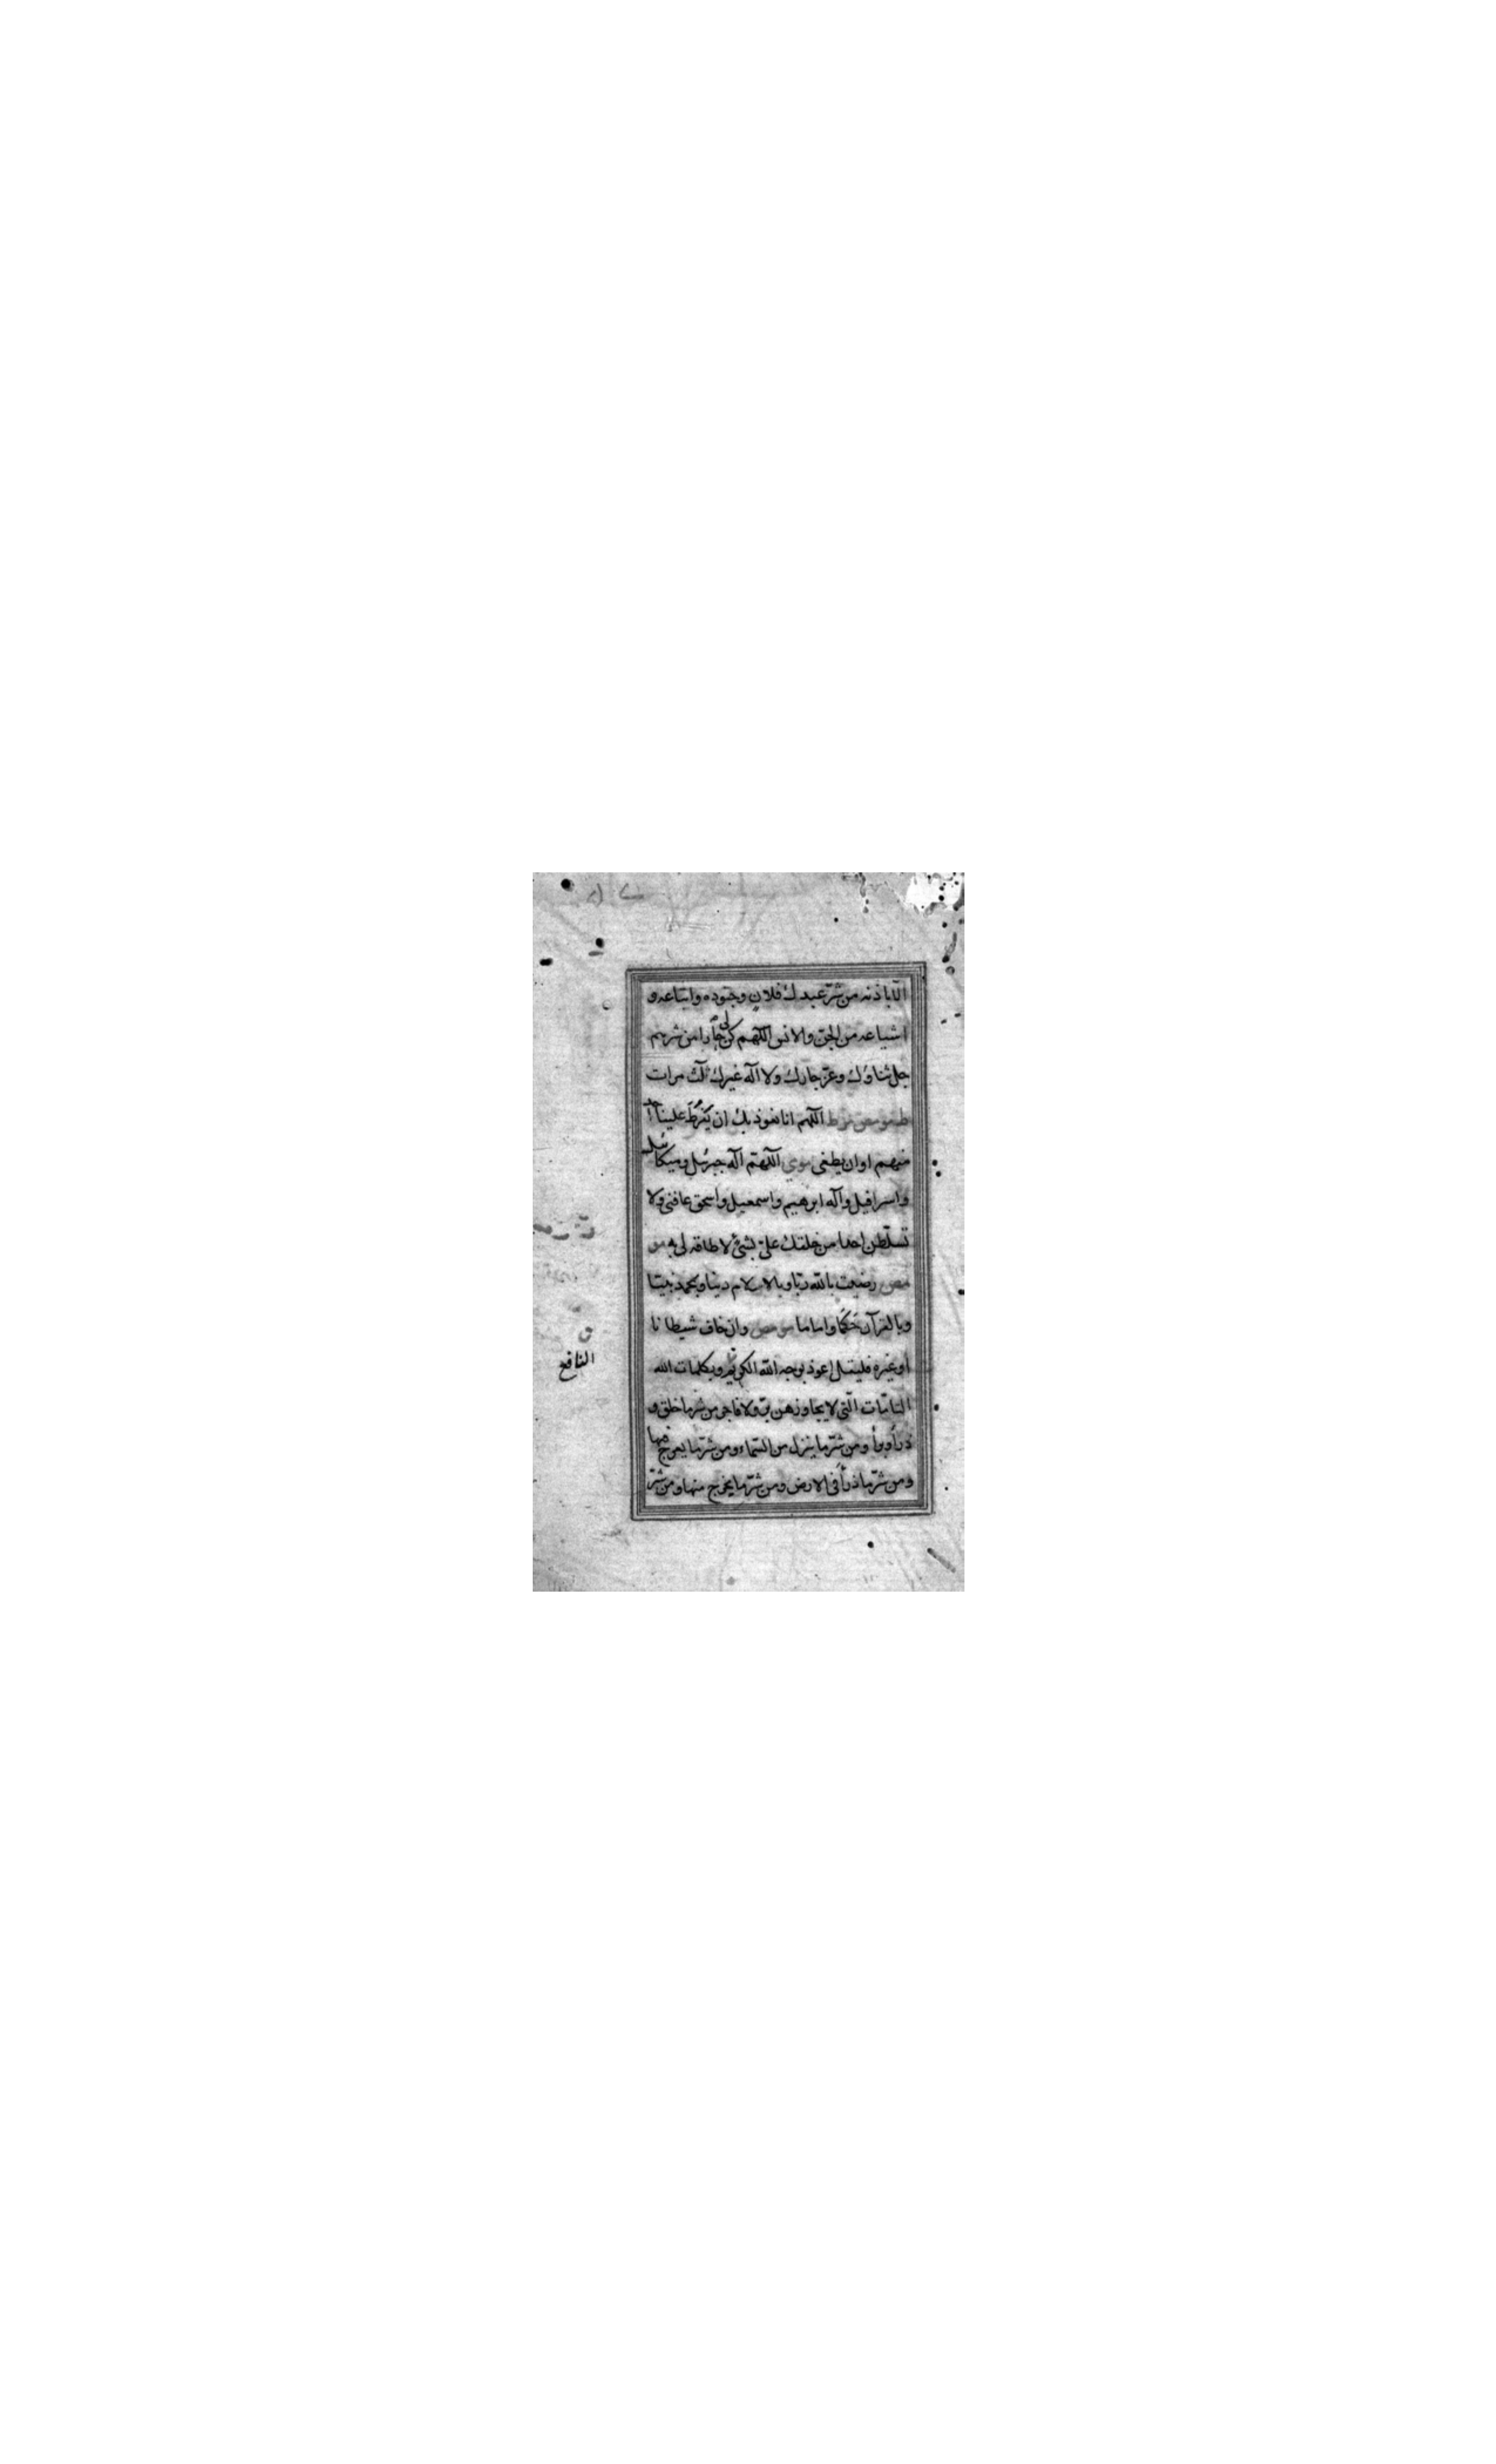 الا باذنه من شر عبدك فلان وجنوده واتباعه و
اشياعه من الجن والانس اللهم كن لى جارا من شرهم
جل ثناؤك وعز جارك ولا اله غيرك ثلث مرات
اللهم انا نعوذ بك ان يفرط علينا احد
منهم او ان يطغى اللهم اله جبرئيل وميكائيل
واسرافيل واله ابرهيم واسمعيل واسحق عافنى ولا
تسلطن احدا من خلقك على بشئ لا طاقة لى به مو
مص رضيت بالله ربا وبالاسلام دينا وبمحمد نبيا
وبالقرآن حَكَما واماما مو مص وان خاف شيطانا
او غيره فليقل اعوذ بوجه الله الكريم وبكلمات الله
التامات التى لا يجاوزهن بر ولا فاجر من شر ما خلق و
ذرأ وبرأ ومن شر ما ينزل من السماء ومن شر ما يعرج فيها
ومن شر ما ذرأ فى الارض ومن شر ما يخرج منها ومن شر
النافع